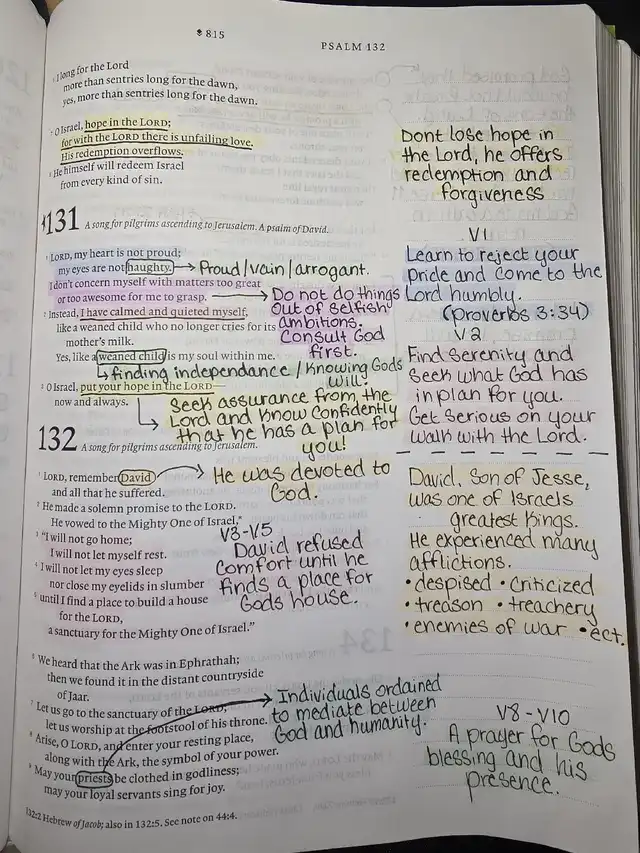 815
PSALM 132
⁶ I long for the Lord
more than sentries long for the dawn,
yes, more than sentries long for the dawn.
⁷ O Israel, hope in the LORD;
for with the LORD there is unfailing love.
His redemption overflows.
⁸ He himself will redeem Israel
from every kind of sin.
Dont lose hope in
the Lord, he offers
redemption and
forgiveness
131
A song for pilgrims ascending to Jerusalem. A psalm of David.
¹ LORD, my heart is not proud;
my eyes are not haughty.
I don't concern myself with matters too great
or too awesome for me to grasp.
² Instead, I have calmed and quieted myself,
like a weaned child who no longer cries for its
mother's milk.
Yes, like a weaned child is my soul within me.
³ O Israel, put your hope in the LORD—
now and always.
Proud/vain/arrogant.
Do not do things
out of selfish
ambitions.
Consult God
first.
finding independance/Knowing Gods
will.
Seek assurance from the
Lord and know confidently
that he has a plan for
you!
V1
Learn to reject your
pride and come to the
Lord humbly.
(Proverbs 3:34)
V2
Find serenity and
seek what God has
in plan for you.
Get serious on your
walk with the Lord.
132
A song for pilgrims ascending to Jerusalem.
¹ LORD, remember David
and all that he suffered.
² He made a solemn promise to the LORD.
He vowed to the Mighty One of Israel,*
³ "I will not go home;
I will not let myself rest.
⁴ I will not let my eyes sleep
nor close my eyelids in slumber
⁵ until I find a place to build a house
for the LORD,
a sanctuary for the Mighty One of Israel."
He was devoted to
God.
V3-V5
David refused
comfort until he
finds a place for
Gods house.
David, Son of Jesse,
was one of Israels
greatest Kings.
He experienced many
afflictions.
• despised • criticized
• treason • treachery
• enemies of war • ect.
⁶ We heard that the Ark was in Ephrathah;
then we found it in the distant countryside
of Jaar.
⁷ Let us go to the sanctuary of the LORD;
let us worship at the footstool of his throne.
⁸ Arise, O LORD, and enter your resting place,
along with the Ark, the symbol of your power.
⁹ May your priests be clothed in godliness;
may your loyal servants sing for joy.
Individuals ordained
to mediate between
God and humanity.
V8-V10
A prayer for Gods
blessing and his
presence.
132:2 Hebrew of Jacob; also in 132:5. See note on 44:4.